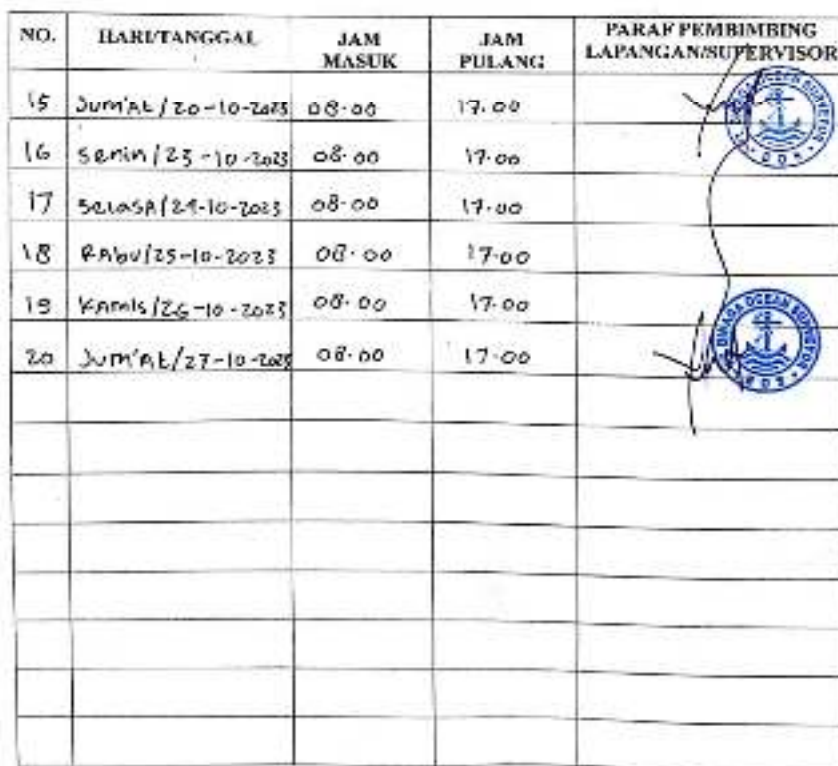 NO. HARI/TANGGAL JAM MASUK JAM PULANG PARAF PEMBIMBING LAPANGAN/SUPERVISOR
15 Jum'At / 20-10-2023 08.00 17.00
16 Senin / 23-10-2023 08.00 17.00
17 SelasA / 24-10-2023 08.00 17.00
18 RAbu / 25-10-2023 08.00 17.00
19 KAmis / 26-10-2023 08.00 17.00
20 Jum'At / 27-10-2023 08.00 17.00
OCEAN SURVEYOR